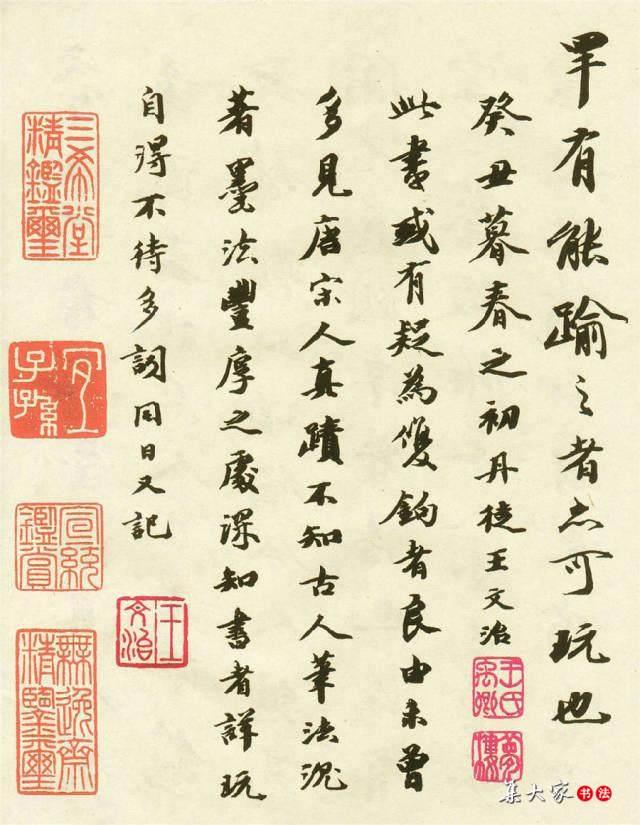 罕有能踰之者亦可玩也
癸丑暮春之初丹徒王文治
王氏禹卿
夢樓
此書或有疑為雙鉤者良由未曾
多見唐宋人真蹟不知古人筆法沉
著墨法豐厚之處深知書者詳玩
自得不待多詞同日又記
王文治
三希堂精鑑璽
宜子孫
宣統鑑賞
無逸齋精鑒璽
集大家书法